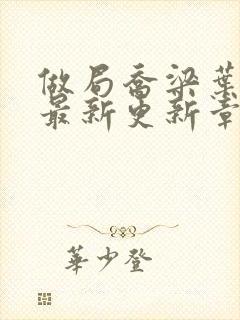 做局喬梁葉
最新更新章
華少登